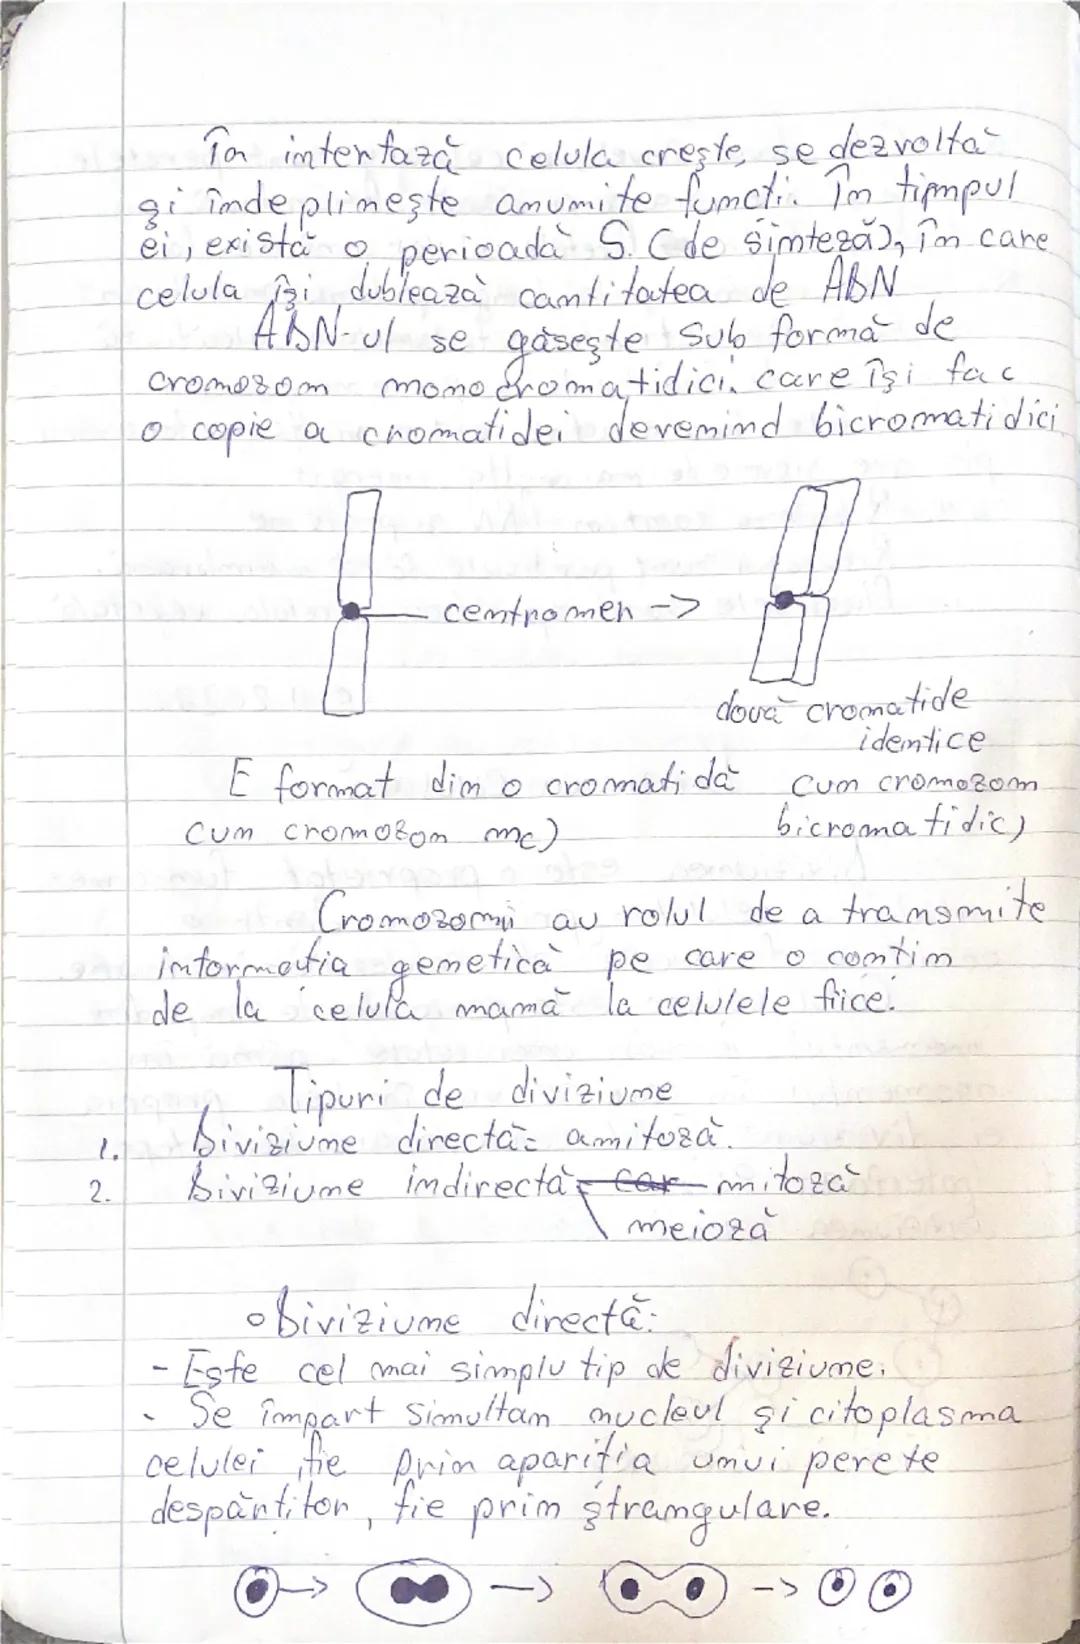 În interfază celula crește, se dezvoltă
și îndeplinește anumite functi. În tipmpul
ei, există o perioadă S. (de sinteză), în care
celula își dublează cantitatea de ADN
ADN-ul se găsește sub formă de
cromozom monocromatidici. care își fac
o copie a cromatidei devenind bicromatidici
centromer ->
două cromatide
identice
E format din o cromatidă cum cromozom
cum cromozom mc) bicromatidic)
Cromozomii au rolul de a transmite
informația genetică pe care o contin
de la celula mamă la celulele fiice.
Tipuri de diviziune
1. Diviziune directă= amitoză.
2. Diviziune indirectă car mitoză
meioză
Diviziune directă:
- Este cel mai simplu tip de diviziune.
- Se împart simultan nucleul și citoplasma
celulei, fie prin apariția unui perete
despărțitor, fie prin ștrangulare.